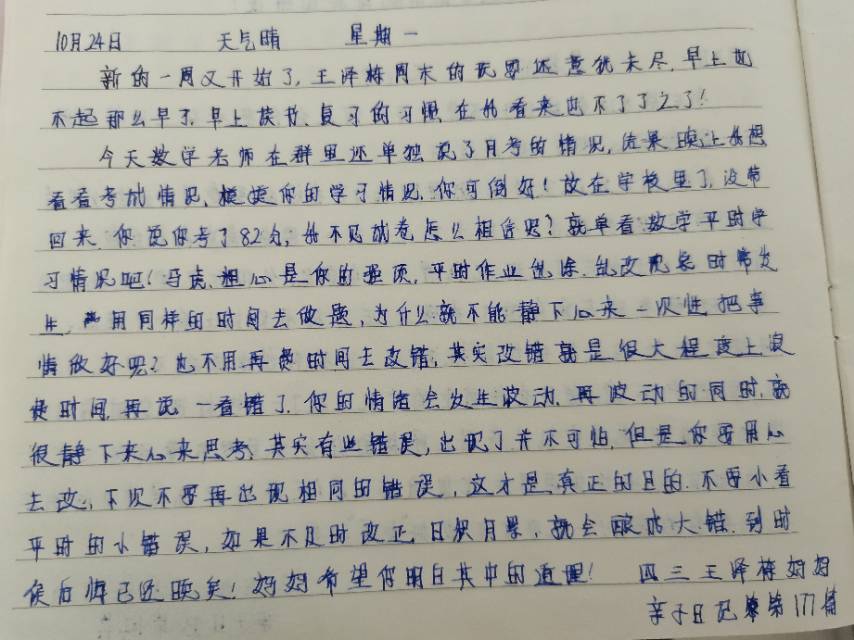 10月24日 天气晴 星期一
新的一周又开始了,王泽栋周末的玩耍还意犹未尽,早上也
不起那么早了,早上读书、复习的习惯在她看来也不了了之了!
今天数学老师在群里还单独说了月考的情况,结果晚上妈想
看看考试情况,提提你的学习情况,你可倒好!放在学校里了,没带
回来,你说你考了82分,妈不见试卷怎么相信呢?就单看数学平时学
习情况吧!马虎、粗心是你的强项,平时作业乱涂、乱改现象时常发
生,用同样的时间去做题,为什么就不能静下心来一次性把事
情做好呢?也不用再费时间去改错,其实改错就是很大程度上浪
费时间,再说一看错了,你的情绪会发生波动,再波动的同时,就
很静下来心来思考,其实有些错误,出现了并不可怕,但是你要用心
去改,下次不要再出现相同的错误,这才是真正的目的.不要小看
平时的小错误,如果不及时改正,日积月累,就会酿成大错.到时
候后悔已还晚矣!妈妈希望你明白其中的道理! 四三王泽栋妈妈
亲子日记第177篇